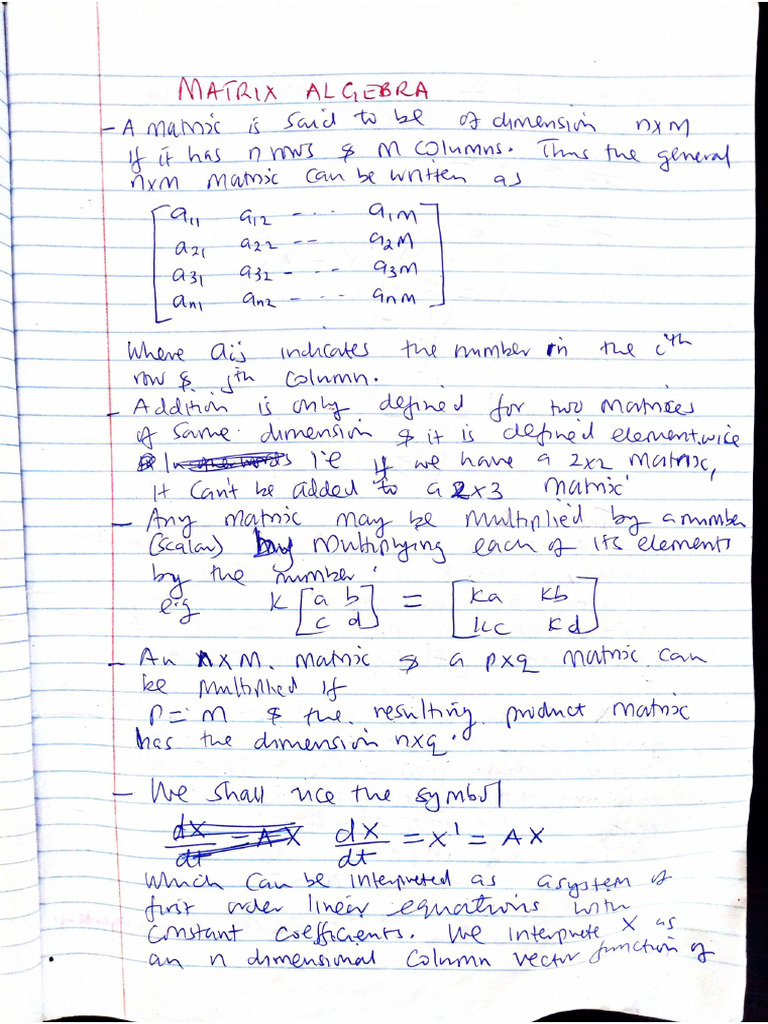 MATRIX ALGEBRA
- A matrix is said to be of dimension nxm
If it has n rows & m columns. Thus the general
nxm matrix can be written as
[a11 a12 - - - a1m]
[a21 a22 - - a2m]
[a31 a32 - - - a3m]
[an1 an2 - - - anm]
Where aij indicates the number in the ith
row & jth column.
- Addition is only defined for two matrices
of same dimension & it is defined elementwice
i.e if we have a 2x2 matrix,
It can't be added to a 2x3 matrix
- Any matrix may be multiplied by a number
(scalar) by multiplying each of its elements
by the number.
e.g K [a b] = [Ka Kb]
[c d] [Kc Kd]
- An nxm matrix & a pxq matrix can
be multiplied if
p = m & the resulting product matrix
has the dimension nxq.
- We shall uce the symbol
dX/dt = AX dX/dt = X' = AX
Which can be interpreted as a system of
first order linear equations with
constant coefficients. We interprete X as
an n dimensional column vector function of